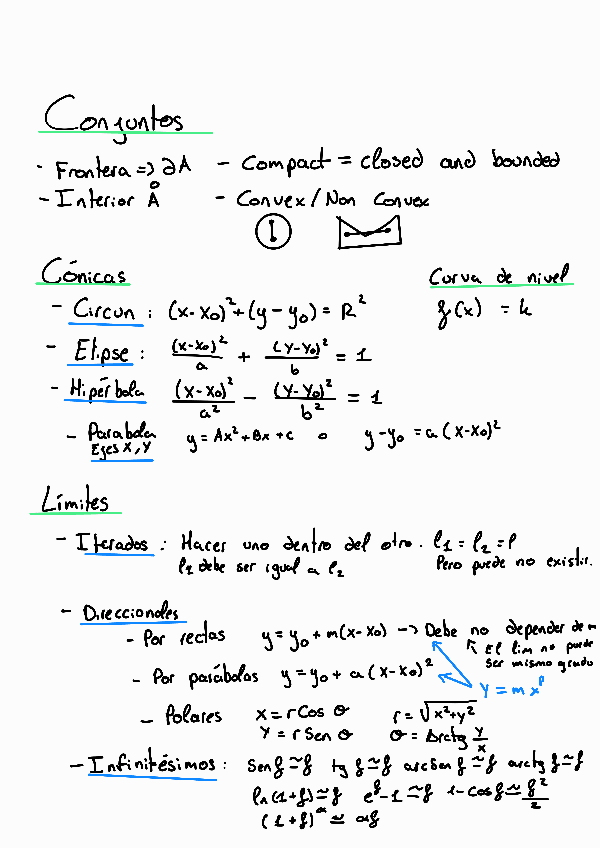 Conjuntos
- Frontera => ∂A - Compact = closed and bounded
- Interior Å - Convex / Non Convex
Cónicas
Curva de nivel
- Circun : (x-x₀)²+(y-y₀) = R² f(x) = k
- Elipse : (x-x₀)²/a + (y-y₀)²/b = 1
- Hipérbola (x-x₀)²/a² - (y-y₀)²/b² = 1
- Parabola y = Ax² + Bx + c o y-y₀ = a (x-x₀)²
Ejes X, Y
Límites
- Iterados : Hacer uno dentro del otro. l₁ = l₂ = l
l₁ debe ser igual a l₂ Pero puede no existir.
- Direccionales
- Por rectas y = y₀ + m(x-x₀) -> Debe no depender de m
El lim no puede
ser mismo grado
- Por parábolas y = y₀ + a (x-x₀)²
y = m xᵖ
- Polares x = r cos θ r = √x²+y²
y = r sen θ θ = Arctg y/x
- Infinitésimos : sen f ≃ f tg f ≃ f arcsen f ≃ f arctg f ≃ f
ln (1+f) ≃ f eᶠ-1 ≃ f 1-cos f ≃ f²/2
(1+f)ᵅ ≃ αf